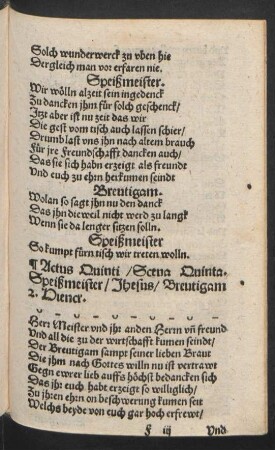 Solch wunderwerck zu vben hie
Dergleich man vor erfaren nie.
Speißmeister.
Wir wölln alzeit sein ingedenck
Zu dancken jhm für solch geschenck/
Itzt aber ist nu zeit das wir
Die gest vom tisch auch lassen schier/
Drumb last vns jhn nach altem brauch
Für jre Freundschafft dancken auch/
Das sie sich habn erzeigt als freundt
Vnd euch zu ehrn herkumen seindt
Breutigam.
Wolan so sagt jhn nu den danck
Das jhn dieweil nicht werd zu langk
Wenn sie da lenger sitzen solln.
Speißmeister
So kumpt fürn tisch wir treten wolln.
¶ Actus Quinti / Scena Quinta.
Speißmeister / Jhesus / Breutigam
2. Diener.
Herr Meister vnd jhr andern Herrn vñ freund
Vnd all die zu der wortschafft kumen seindt/
Der Breutigam sampt seiner lieben Braut
Die jhm nach Gottes willn nu ist vertrawt
Gegn ewrer lieb auffs höchst bedancken sich
Das jhr euch habt erzeigt so williglich/
Zu jhren ehrn on beschwerung kumen seit
Welchs beyde von euch gar hoch erfrewt/
F iij Vnd